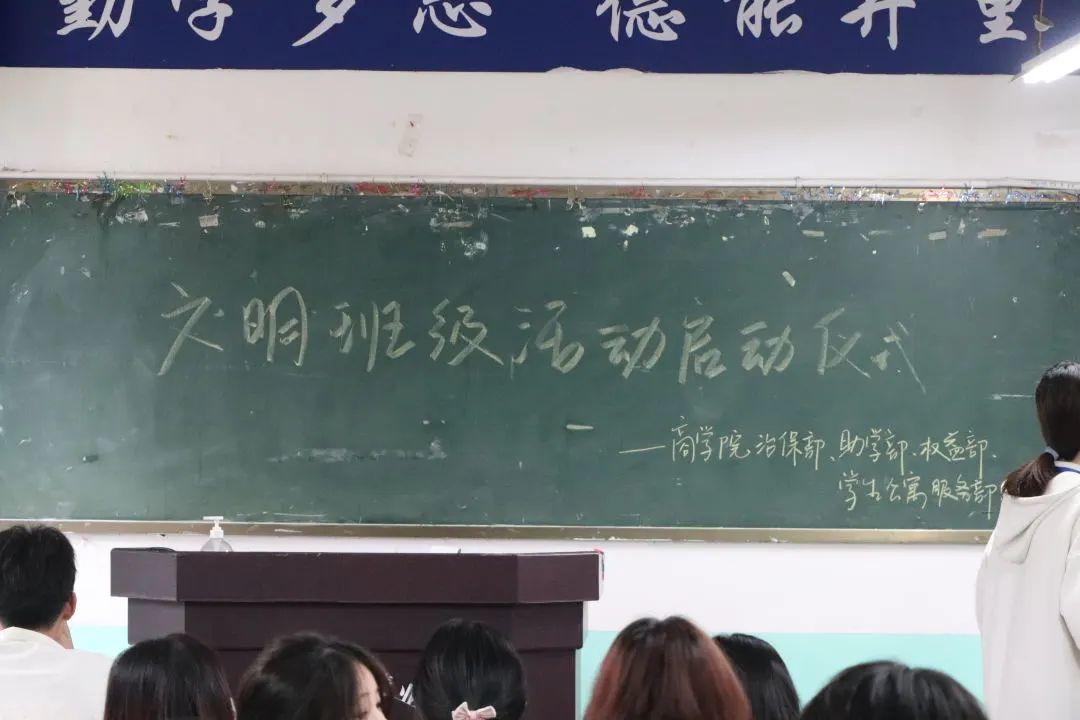 勤学多思 德能并重
文明班级活动启动仪式
——商学院治保部、助学部、权益部、
学生公寓服务部